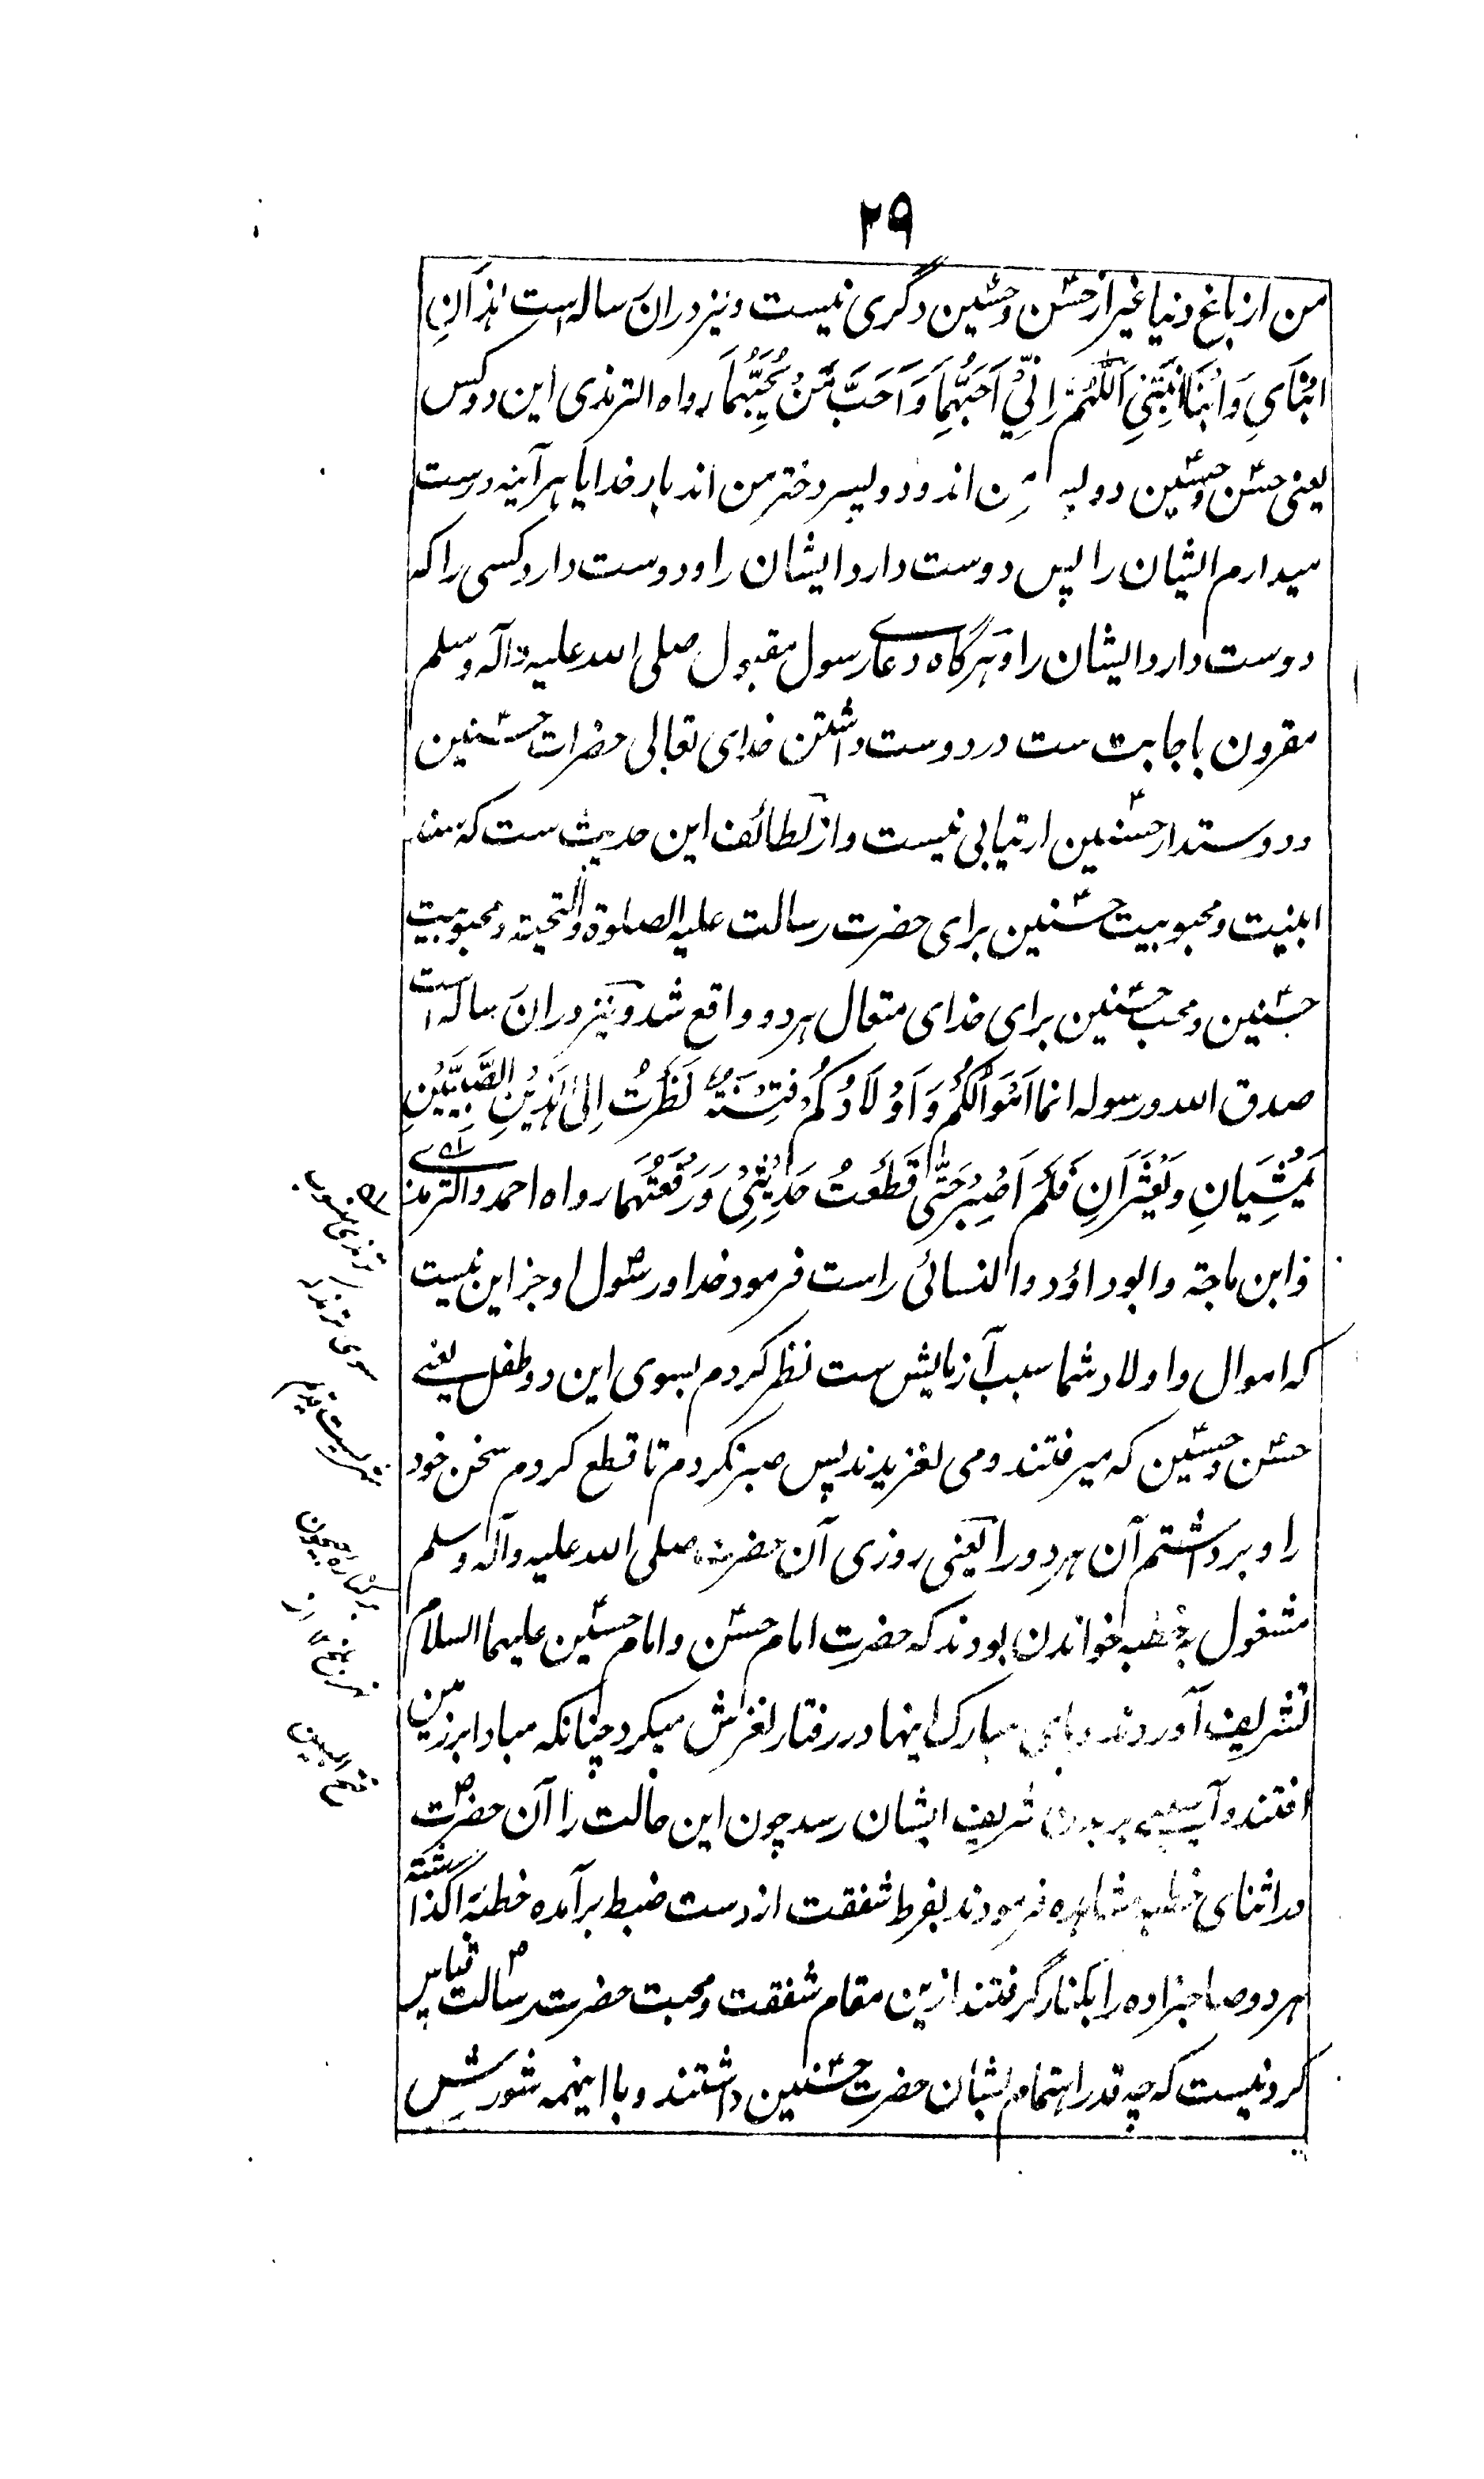 ۲۹
من از باغ دنیا غیر از حسنؑ و حسینؑ دگری نیست و نیز دران رساله است هٰذَانِ
ابْنَایَ وَابْنَا ابْنَتِیْ اَللّٰهُمَّ اِنِّیْ اُحِبُّهُمَا وَ اَحَبَّ مَنْ یُّحِبُّهُمَا رواه الترمذی این دو کس
یعنی حسنؑ و حسینؑ دو پسر من اند و دو پسر دختر من اند بار خدایا هر آئینه دوست
میدارم ایشان را پس دوست دار ایشان را و دوست دار کسی را که
دوست دارد ایشان را و هرگاه دعای رسول مقبول صلی الله علیه وآله وسلم
مقرون باجابت ست در دوست داشتن خدای تعالی حضرات حسنینؑ
و دوستدار حسنینؑ ارتیابی نیست و از لطائف این حدیث ست که
ابنیت و محبوبیت حسنینؑ برای حضرت رسالت علیه الصلوة والتحیته و محبوبیت
حسنینؑ و محب حسنینؑ برای خدای متعال هر دو واقع شد و نیز دران رساله است
صدق الله ورسوله انما اَمْوَالُکُمْ وَاَوْلَادُکُمْ فِتْنَةٌ نَظَرْتُ اِلیٰ هٰذَیْنِ الصَّبِیَّیْنِ
یَمْشِیَانِ وَیَعْثُرَانِ فَلَمْ اَصْبِرْ حَتّٰی قَطَعْتُ حَدِیْثِیْ وَرَفَعْتُهُمَا رواه احمد والترمذی
وابن ماجة وابوداؤد والنسائی راست فرمود خدا و رسولؐ او جز این نیست
که اموال و اولاد شما سبب آزمایش ست نظر کردم بسوی این دو طفل یعنی
حسنؑ و حسینؑ که میرفتند و می لغزیدند پس صبر نکردم تا قطع کردم سخن خود
را و برداشتم آن هر دو را یعنی روزی آن حضرت صلی الله علیه وآله وسلم
مشغول به خطبه خواندن بودند که حضرت امام حسنؑ و امام حسینؑ علیهما السلام
تشریف آوردند و پای مبارک اینها در رفتار لغزش میکرد چنانکه مبادا بر زمین
افتند و آسیبی بر بدن شریف ایشان رسد چون این حالت را آن حضرتؐ
در اثنای خطبه مشاهده فرمودند بفرط شفقت از دست ضبط برآمده خطبه را گذاشته
هر دو صاحبزاده را بکنار گرفتند ازین مقام شفقت و محبت حضرت رسالتؐ قیاس
کردنیست که چه قدر اهتمام بشان حضرت حسنینؑ داشتند و با اینهمه شورش
ترمذی منسوب
سوی ترمذ
شهریست قدیم
بر کناره جیحون
نهر بلخ از